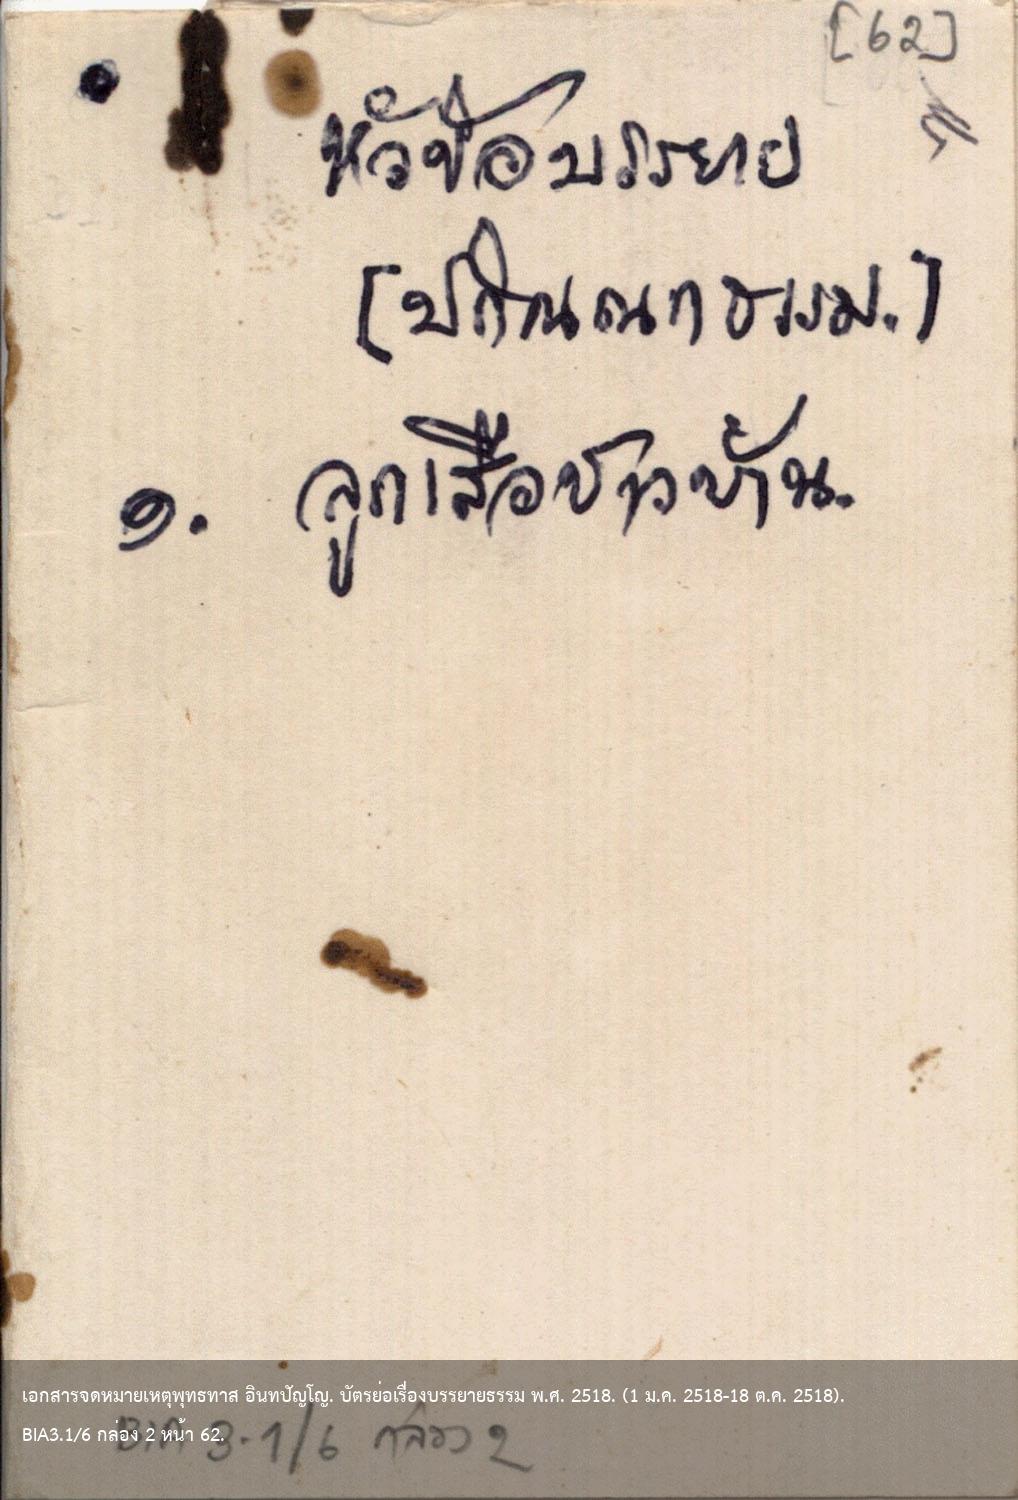 [62]
หัวข้อบรรยาย
[ปกิณณกธรรม.]
๑. ลูกเสือชาวบ้าน.
เอกสารจดหมายเหตุพุทธทาส อินทปัญโญ. บัตรย่อเรื่องบรรยายธรรม พ.ศ. 2518. (1 ม.ค. 2518-18 ต.ค. 2518).
BIA3.1/6 กล่อง 2 หน้า 62.
BIA 3.1/6 กล่อง 2